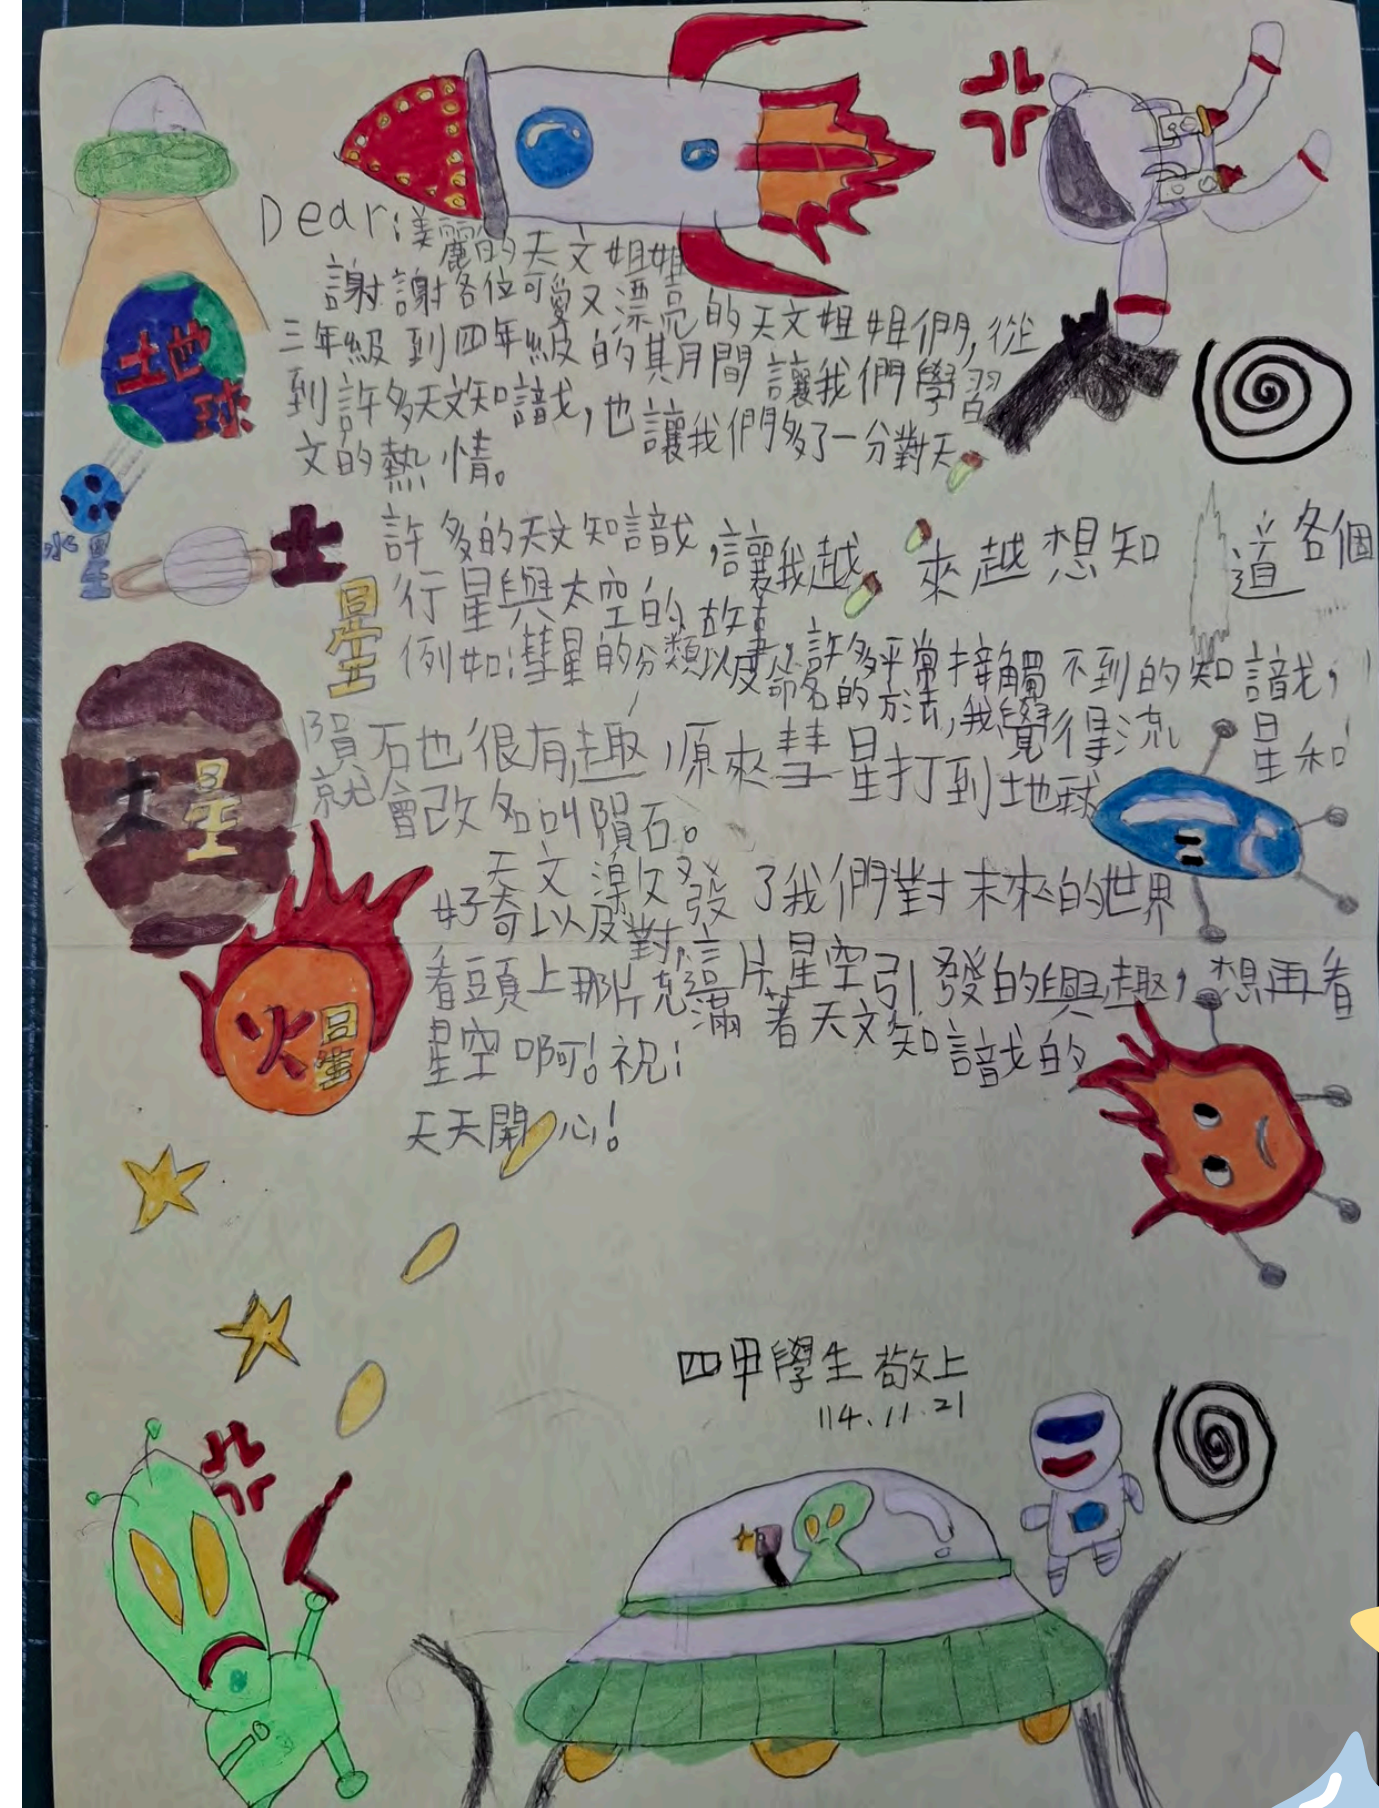 Dear:美麗的天文姐姐
謝謝各位可愛又漂亮的天文姐姐們,從
三年級到四年級的其月間讓我們學習
到許多天文知識,也讓我們多了一分對天
文的熱情。
許多的天文知識,讓我越來越想知道各個
行星與太空的故事,許多平常接觸不到的知識,
例如:彗星的分類以及命名的方法,我覺得流星和
隕石也很有趣,原來彗星打到地球
就會改名叫隕石。
天文 發了我們對未來的世界
好奇以及對這片星空引發的興趣,想再看
看頭上那片充滿著天文知識的
星空啊!祝:
天天開心!
四甲學生敬上
114.11.21
地球
水星
土星
木星
火星